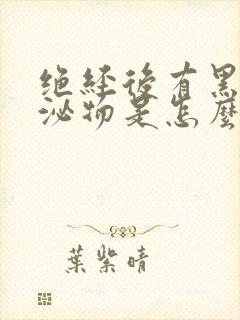 绝经後有黑
泌物是怎麽
葉紫晴